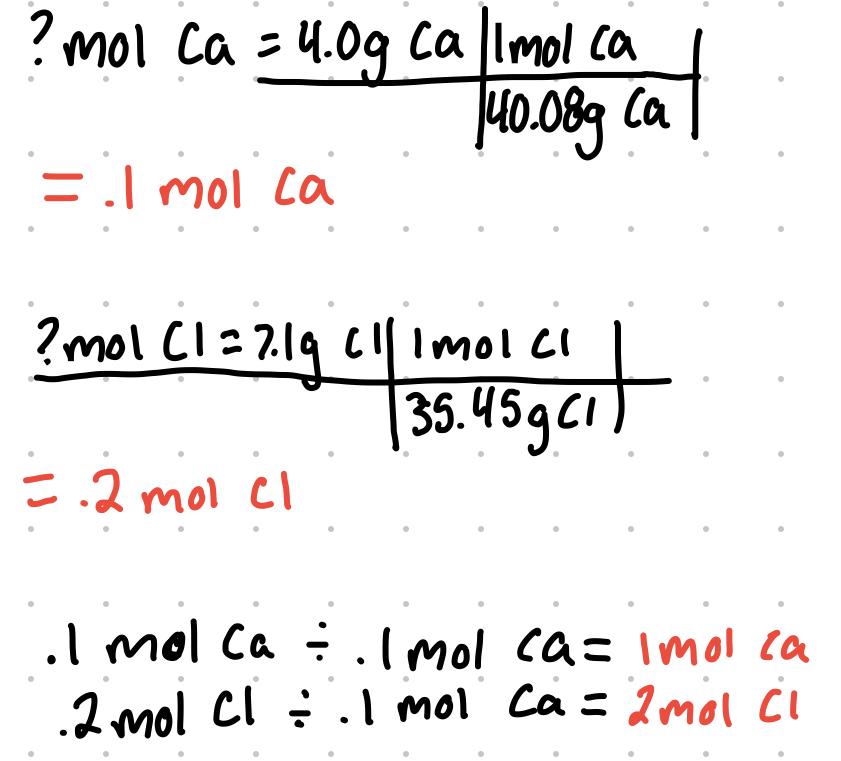 ? mol Ca = 4.0g Ca | 1mol Ca
40.08g Ca
= .1 mol Ca
? mol Cl = 7.1g Cl | 1mol Cl
35.45g Cl
= .2 mol Cl
.1 mol Ca ÷ .1 mol Ca = 1mol Ca
.2 mol Cl ÷ .1 mol Ca = 2mol Cl